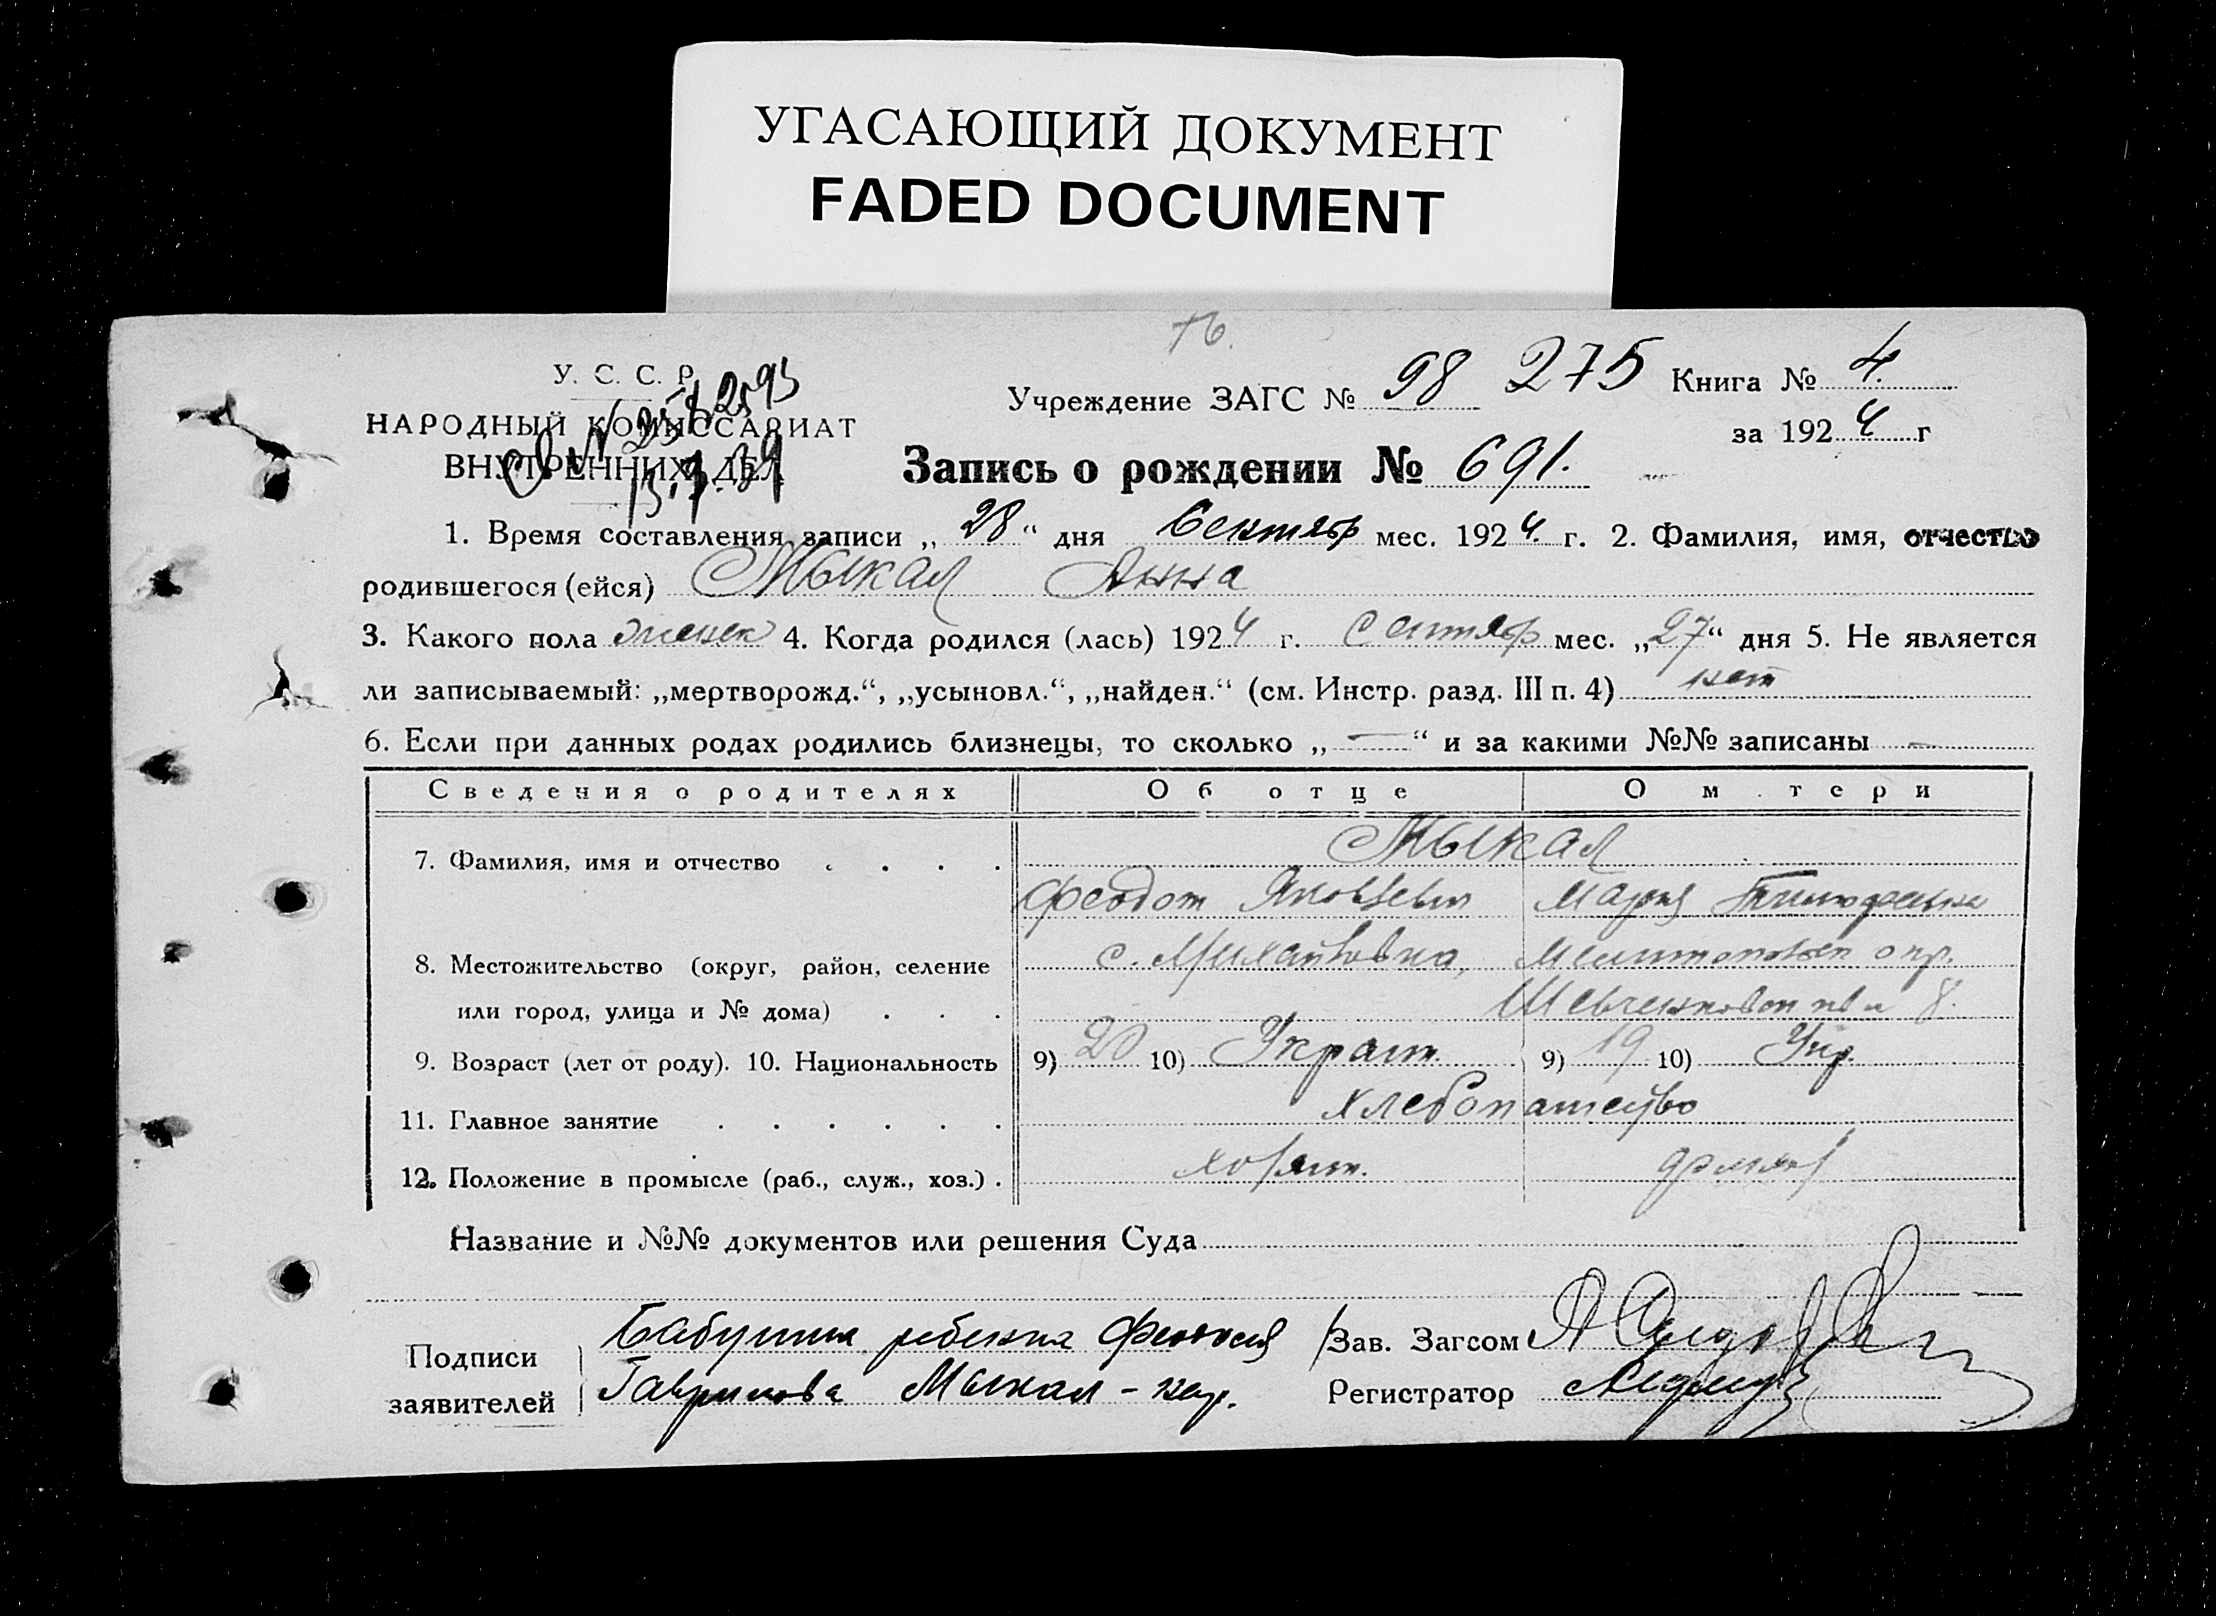 УГАСАЮЩИЙ ДОКУМЕНТ
FADED DOCUMENT
У. С. С. Р.
НАРОДНЫЙ КОМИССАРИАТ
ВНУТРЕННИХ ДЕЛ
Учреждение ЗАГС № 98 275 Книга № 4.
за 1924 г
Запись о рождении № 691.
1. Время составления записи „28“ дня Сентябр мес. 1924. г. 2. Фамилия, имя, отчество
родившегося (ейся) Мыкал Анна
3. Какого пола женск 4. Когда родился (лась) 1924 г. Сентябр мес. „27“ дня 5. Не является
ли записываемый: „мертворожд.“, „усыновл.“, „найден.“ (см. Инстр. разд. III п. 4) нет
6. Если при данных родах родились близнецы, то сколько „—“ и за какими №№ записаны —
Сведения о родителях Об отце О м тери
Мыкал
7. Фамилия, имя и отчество
Феодот Яковлевич Мария Тимофеевна
8. Местожительство (округ, район, селение с. Михайловка, Мелитопольск окр.
или город, улица и № дома) 8.
9. Возраст (лет от роду). 10. Национальность 9) 20 10) Украин. 9) 19 10) Укр.
11. Главное занятие хлебопашество
12. Положение в промысле (раб., служ., хоз.) хозяин.
Название и №№ документов или решения Суда
Подписи заявителей Бабушка ребенка
Мыкал - негр.
Зав. Загсом
Регистратор